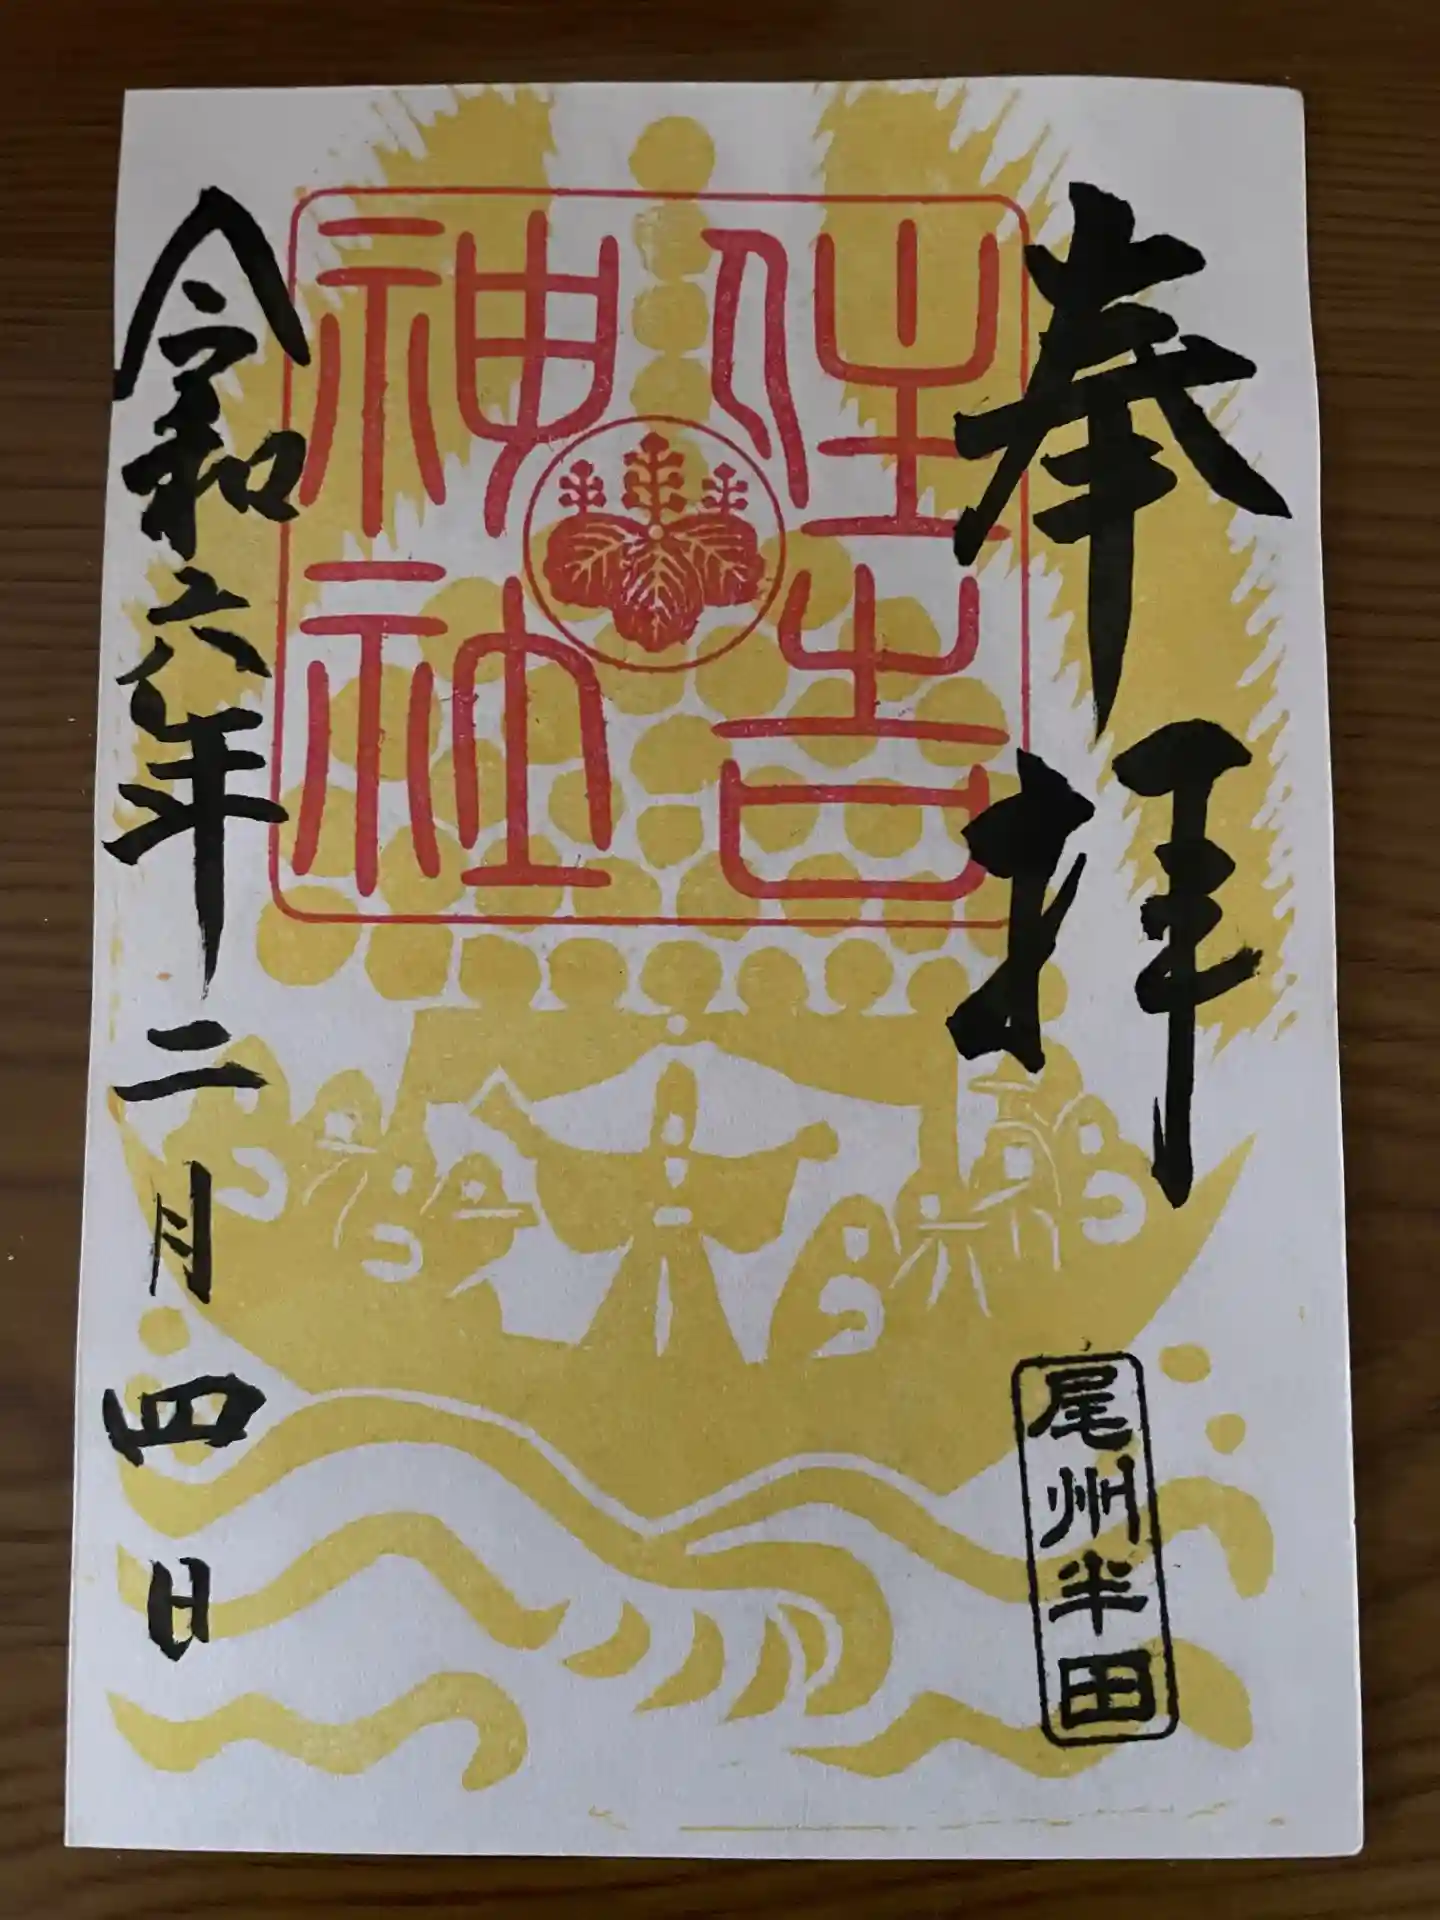 奉拝
住吉
神社
尾州半田
令和六年二月四日